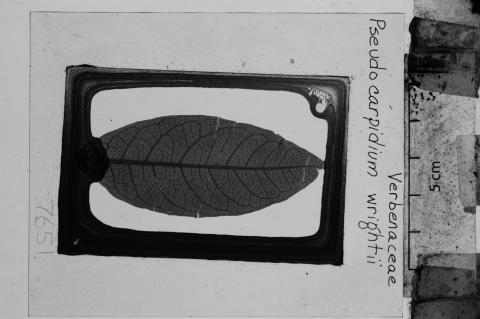 Verbenaceae
Pseudocarpidium wrightii
5cm
7651